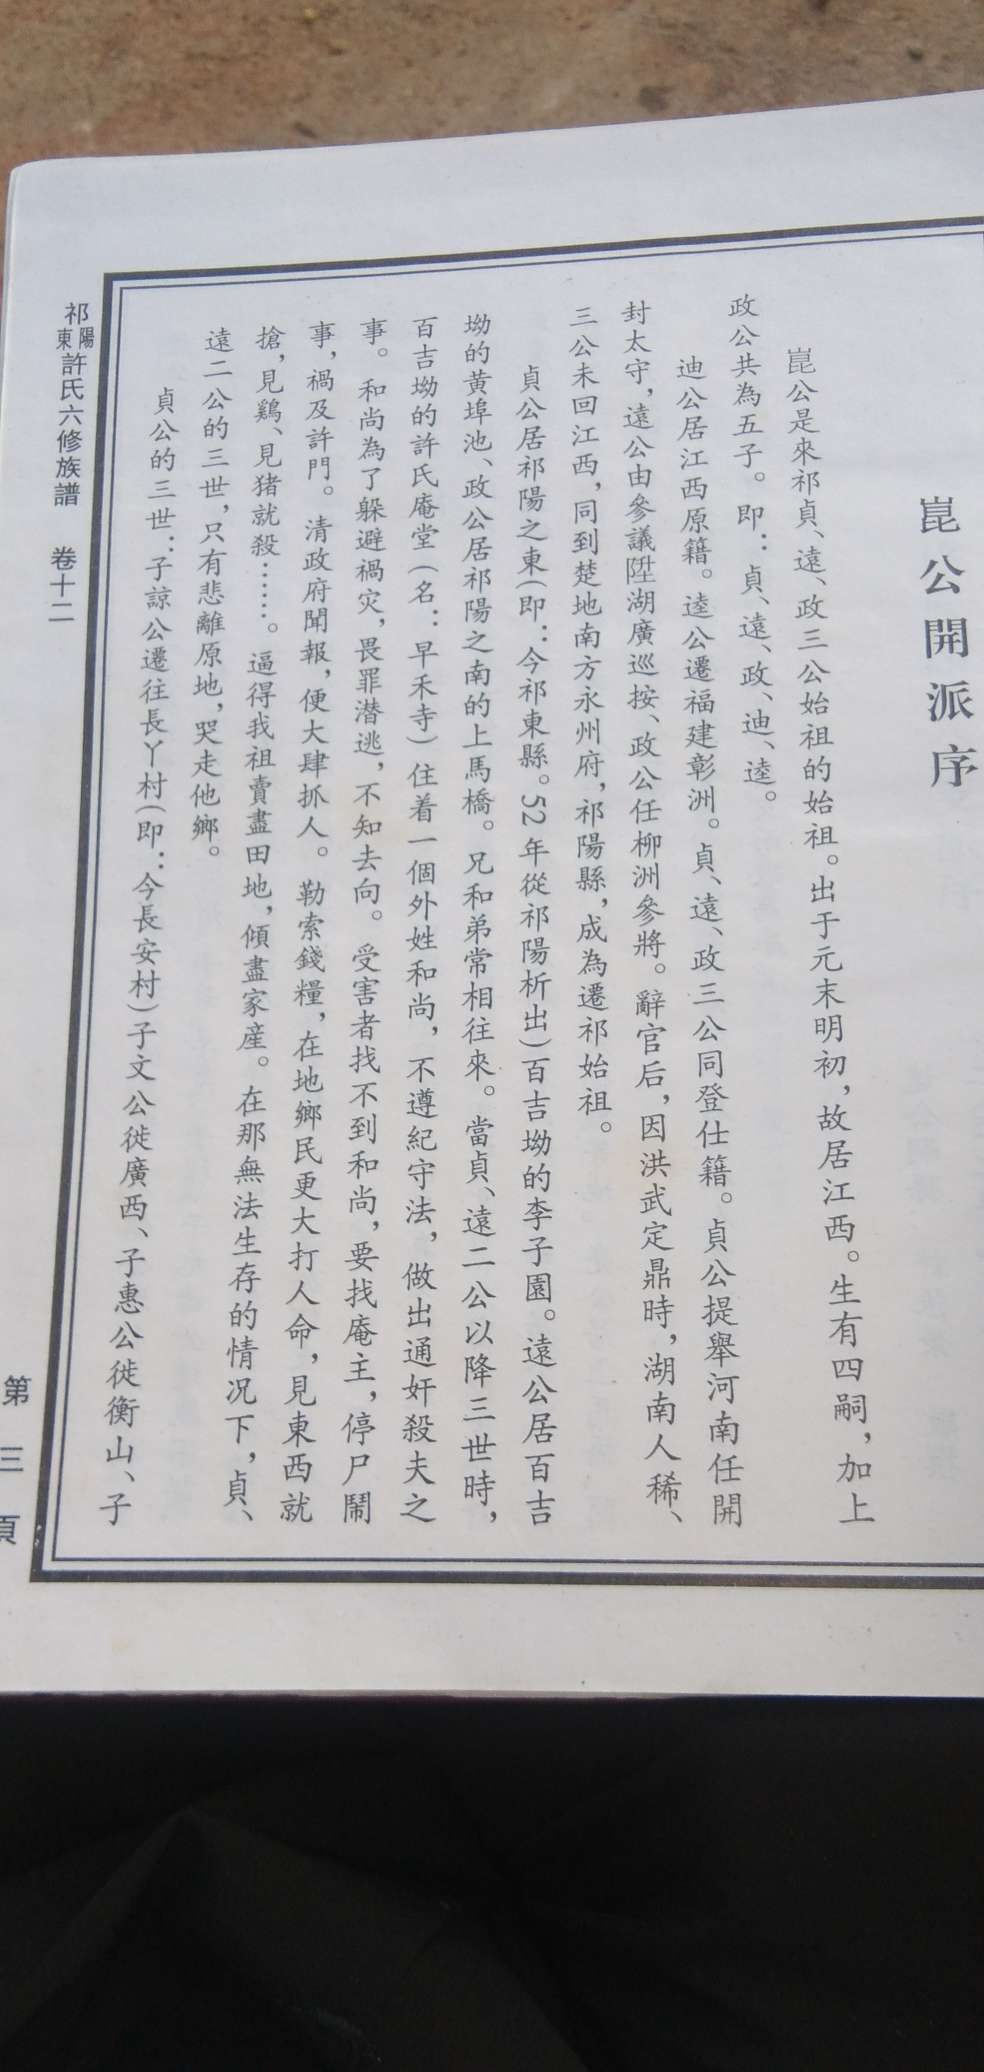 崑公開派序
崑公是來祁貞、遠、政三公始祖的始祖。出于元末明初，故居江西。生有四嗣，加上
政公共為五子。即：貞、遠、政、迪、逵。
迪公居江西原籍。逵公遷福建彰洲。貞、遠、政三公同登仕籍。貞公提舉河南任開
封太守，遠公由參議陞湖廣巡按、政公任柳洲參將。辭官后，因洪武定鼎時，湖南人稀、
三公未回江西，同到楚地南方永州府，祁陽縣，成為遷祁始祖。
貞公居祁陽之東（即：今祁東縣。52年從祁陽析出）百吉坳的李子園。遠公居百吉
坳的黃埠池、政公居祁陽之南的上馬橋。兄和弟常相往來。當貞、遠二公以降三世時，
百吉坳的許氏庵堂（名：早禾寺）住着一個外姓和尚，不遵紀守法，做出通奸殺夫之
事。和尚為了躲避禍灾，畏罪潜逃，不知去向。受害者找不到和尚，要找庵主，停尸鬧
事，禍及許門。清政府聞報，便大肆抓人。勒索錢糧，在地鄉民更大打人命，見東西就
搶，見鷄、見猪就殺……。逼得我祖賣盡田地，傾盡家産。在那無法生存的情况下，貞、
遠二公的三世，只有悲離原地，哭走他鄉。
貞公的三世：子諒公遷往長丫村（即：今長安村）子文公徙廣西、子惠公徙衡山、子
祁陽東許氏六修族譜 卷十二
第三頁